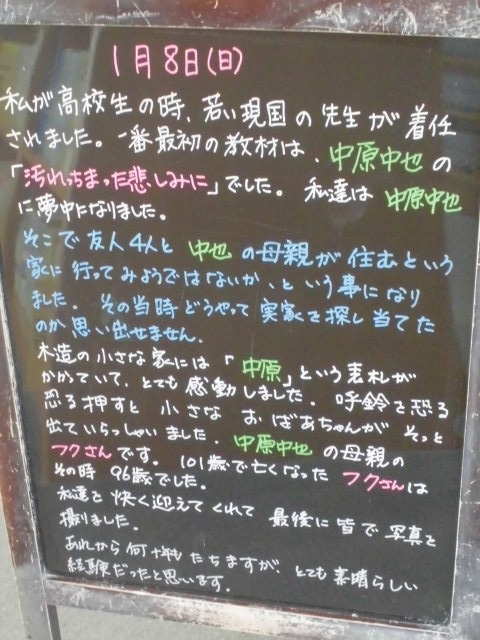 1月8日(日)
私が高校生の時、若い現国の先生が着任
されました。一番最初の教材は、中原中也の
「汚れっちまった悲しみに」でした。私達は中原中也
に夢中になりました。
そこで友人4人と中也の母親が住むという
家に行ってみようではないか、という事になり
ました。その当時どうやって実家を探し当てた
のか思い出せません。
木造の小さな家には「中原」という表札が
かかっていて、とても感動しました。呼鈴を恐る
恐る押すと小さなおばあちゃんがそっと
出ていらっしゃいました。中原中也の母親の
フクさんです。101歳で亡くなったフクさんは
その時96歳でした。
私達を快く迎えてくれて最後に皆で写真を
撮りました。
あれから何十年もたちますが、とても素晴らしい
経験だったと思います。